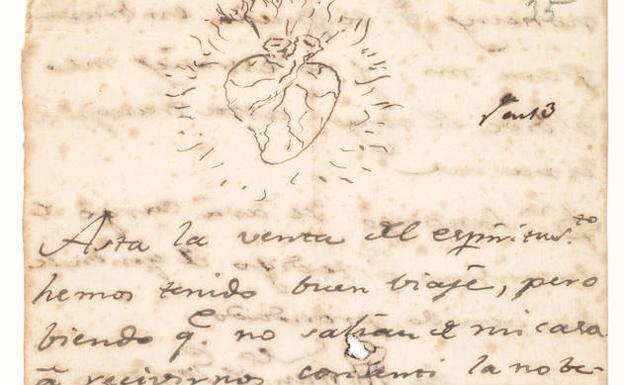 25
Asta la venta del espiritus.to
hemos tenido buen viaje, pero
biendo q.e no salian de mi casa
á recivirnos la no be-